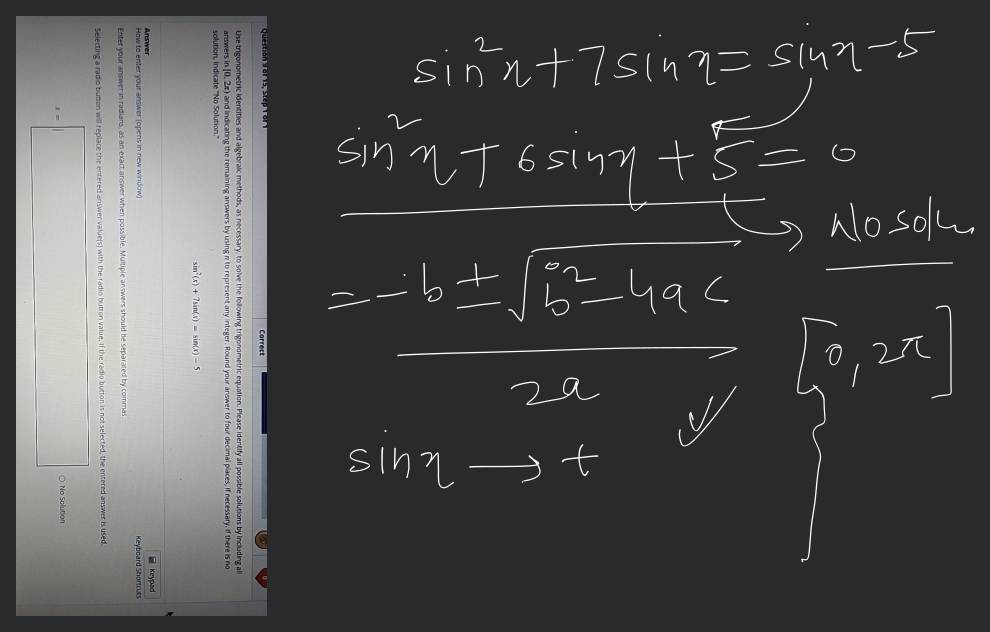 Question 9 of 15, Step 1 of 1
Correct
Use trigonometric identities and algebraic methods, as necessary, to solve the following trigonometric equation. Please identify all possible solutions by including all
answers in [0, 2π) and indicating the remaining answers by using n to represent any integer. Round your answer to four decimal places, if necessary. If there is no
solution, indicate "No Solution."
sin²(x) + 7sin(x) = sin(x) − 5
Answer
Keypad
How to enter your answer (opens in new window)
Keyboard Shortcuts
Enter your answer in radians, as an exact answer when possible. Multiple answers should be separated by commas.
Selecting a radio button will replace the entered answer value(s) with the radio button value. If the radio button is not selected, the entered answer is used.
x =
No Solution
sin²x + 7sinx = sinx − 5
sin²x + 6sinx + 5 = 0
No soln
= −b ± √b² − 4ac
2a
[0, 2π]
sinx → t